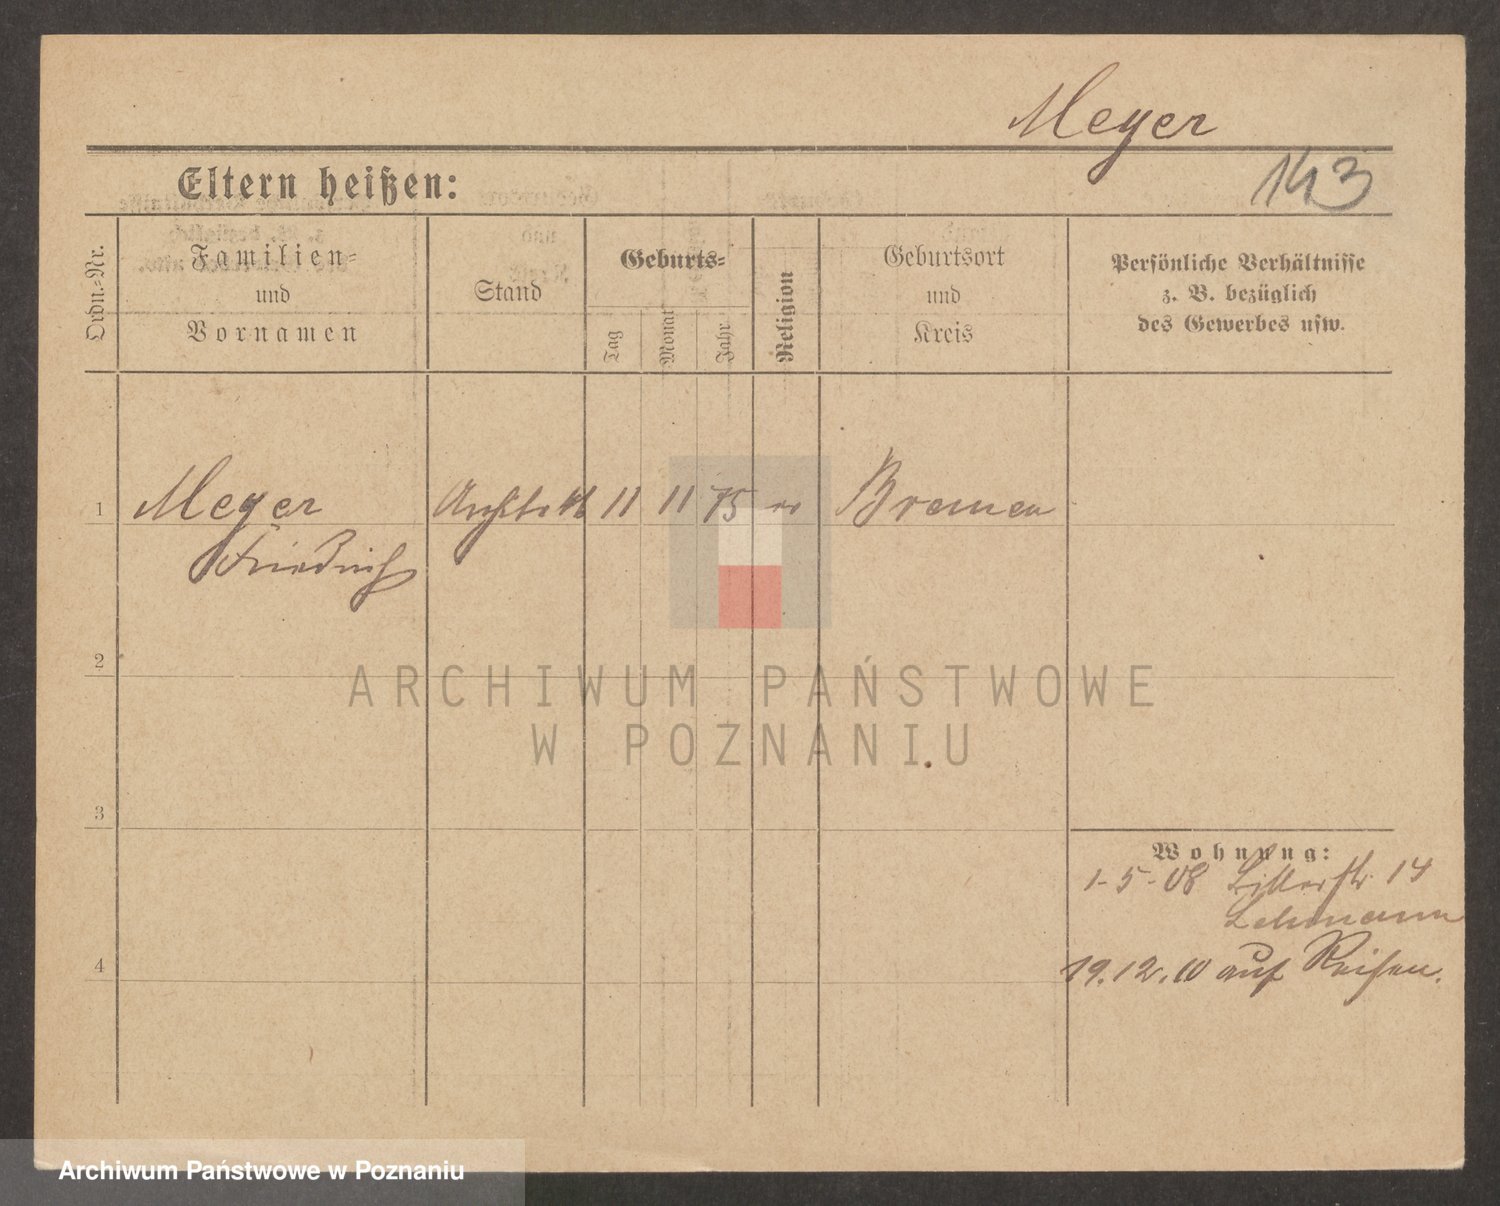 Meyer
143
Eltern heißen:
Ordn.-Nr.
Familien-
und
Vornamen
Stand
Geburts-
Tag
Monat
Jahr
Religion
Geburtsort
und
Kreis
Persönliche Verhältnisse
z. B. bezüglich
des Gewerbes usw.
1 Meyer 11 11 75 ev Bremen
Friedrich
2
ARCHIWUM PAŃSTWOWE
W POZNANIU
3
Wohnung:
1-5-08 14
Lehmann
4 19.12.10 auf Reisen.
Archiwum Państwowe w Poznaniu